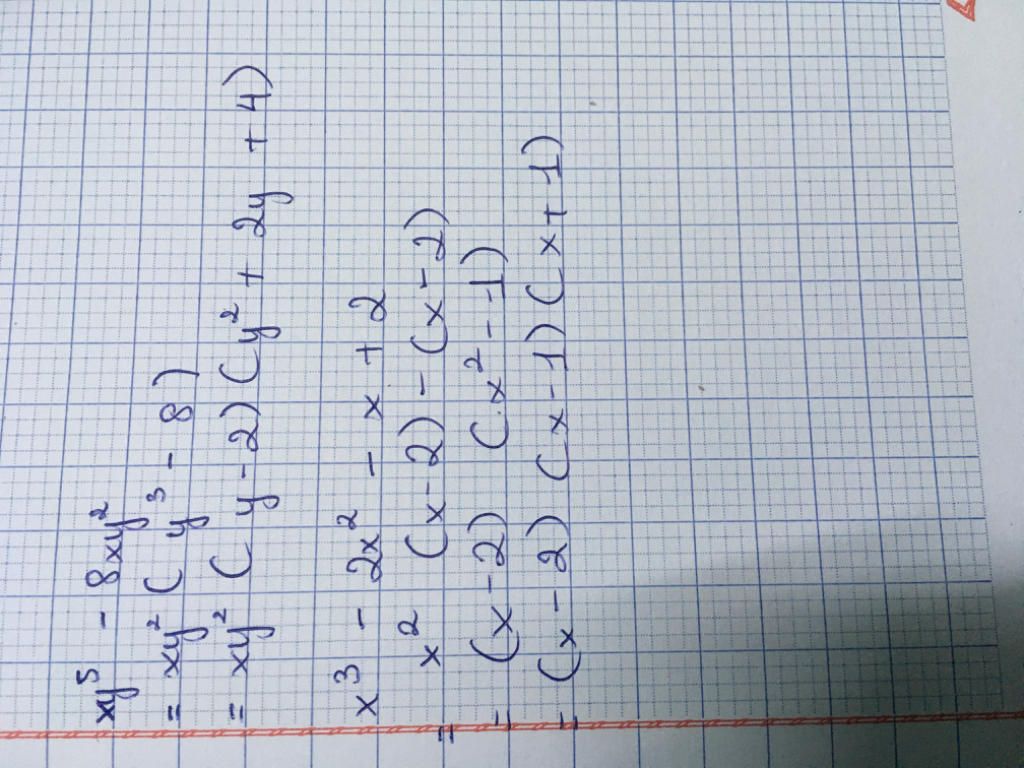 xy⁵ - 8xy²
= xy² ( y³ - 8 )
= xy² ( y - 2) (y² + 2y + 4)
x³ - 2x² - x + 2
= x² (x - 2) - (x - 2)
= (x - 2) (x² - 1)
= (x - 2) (x - 1) (x + 1)